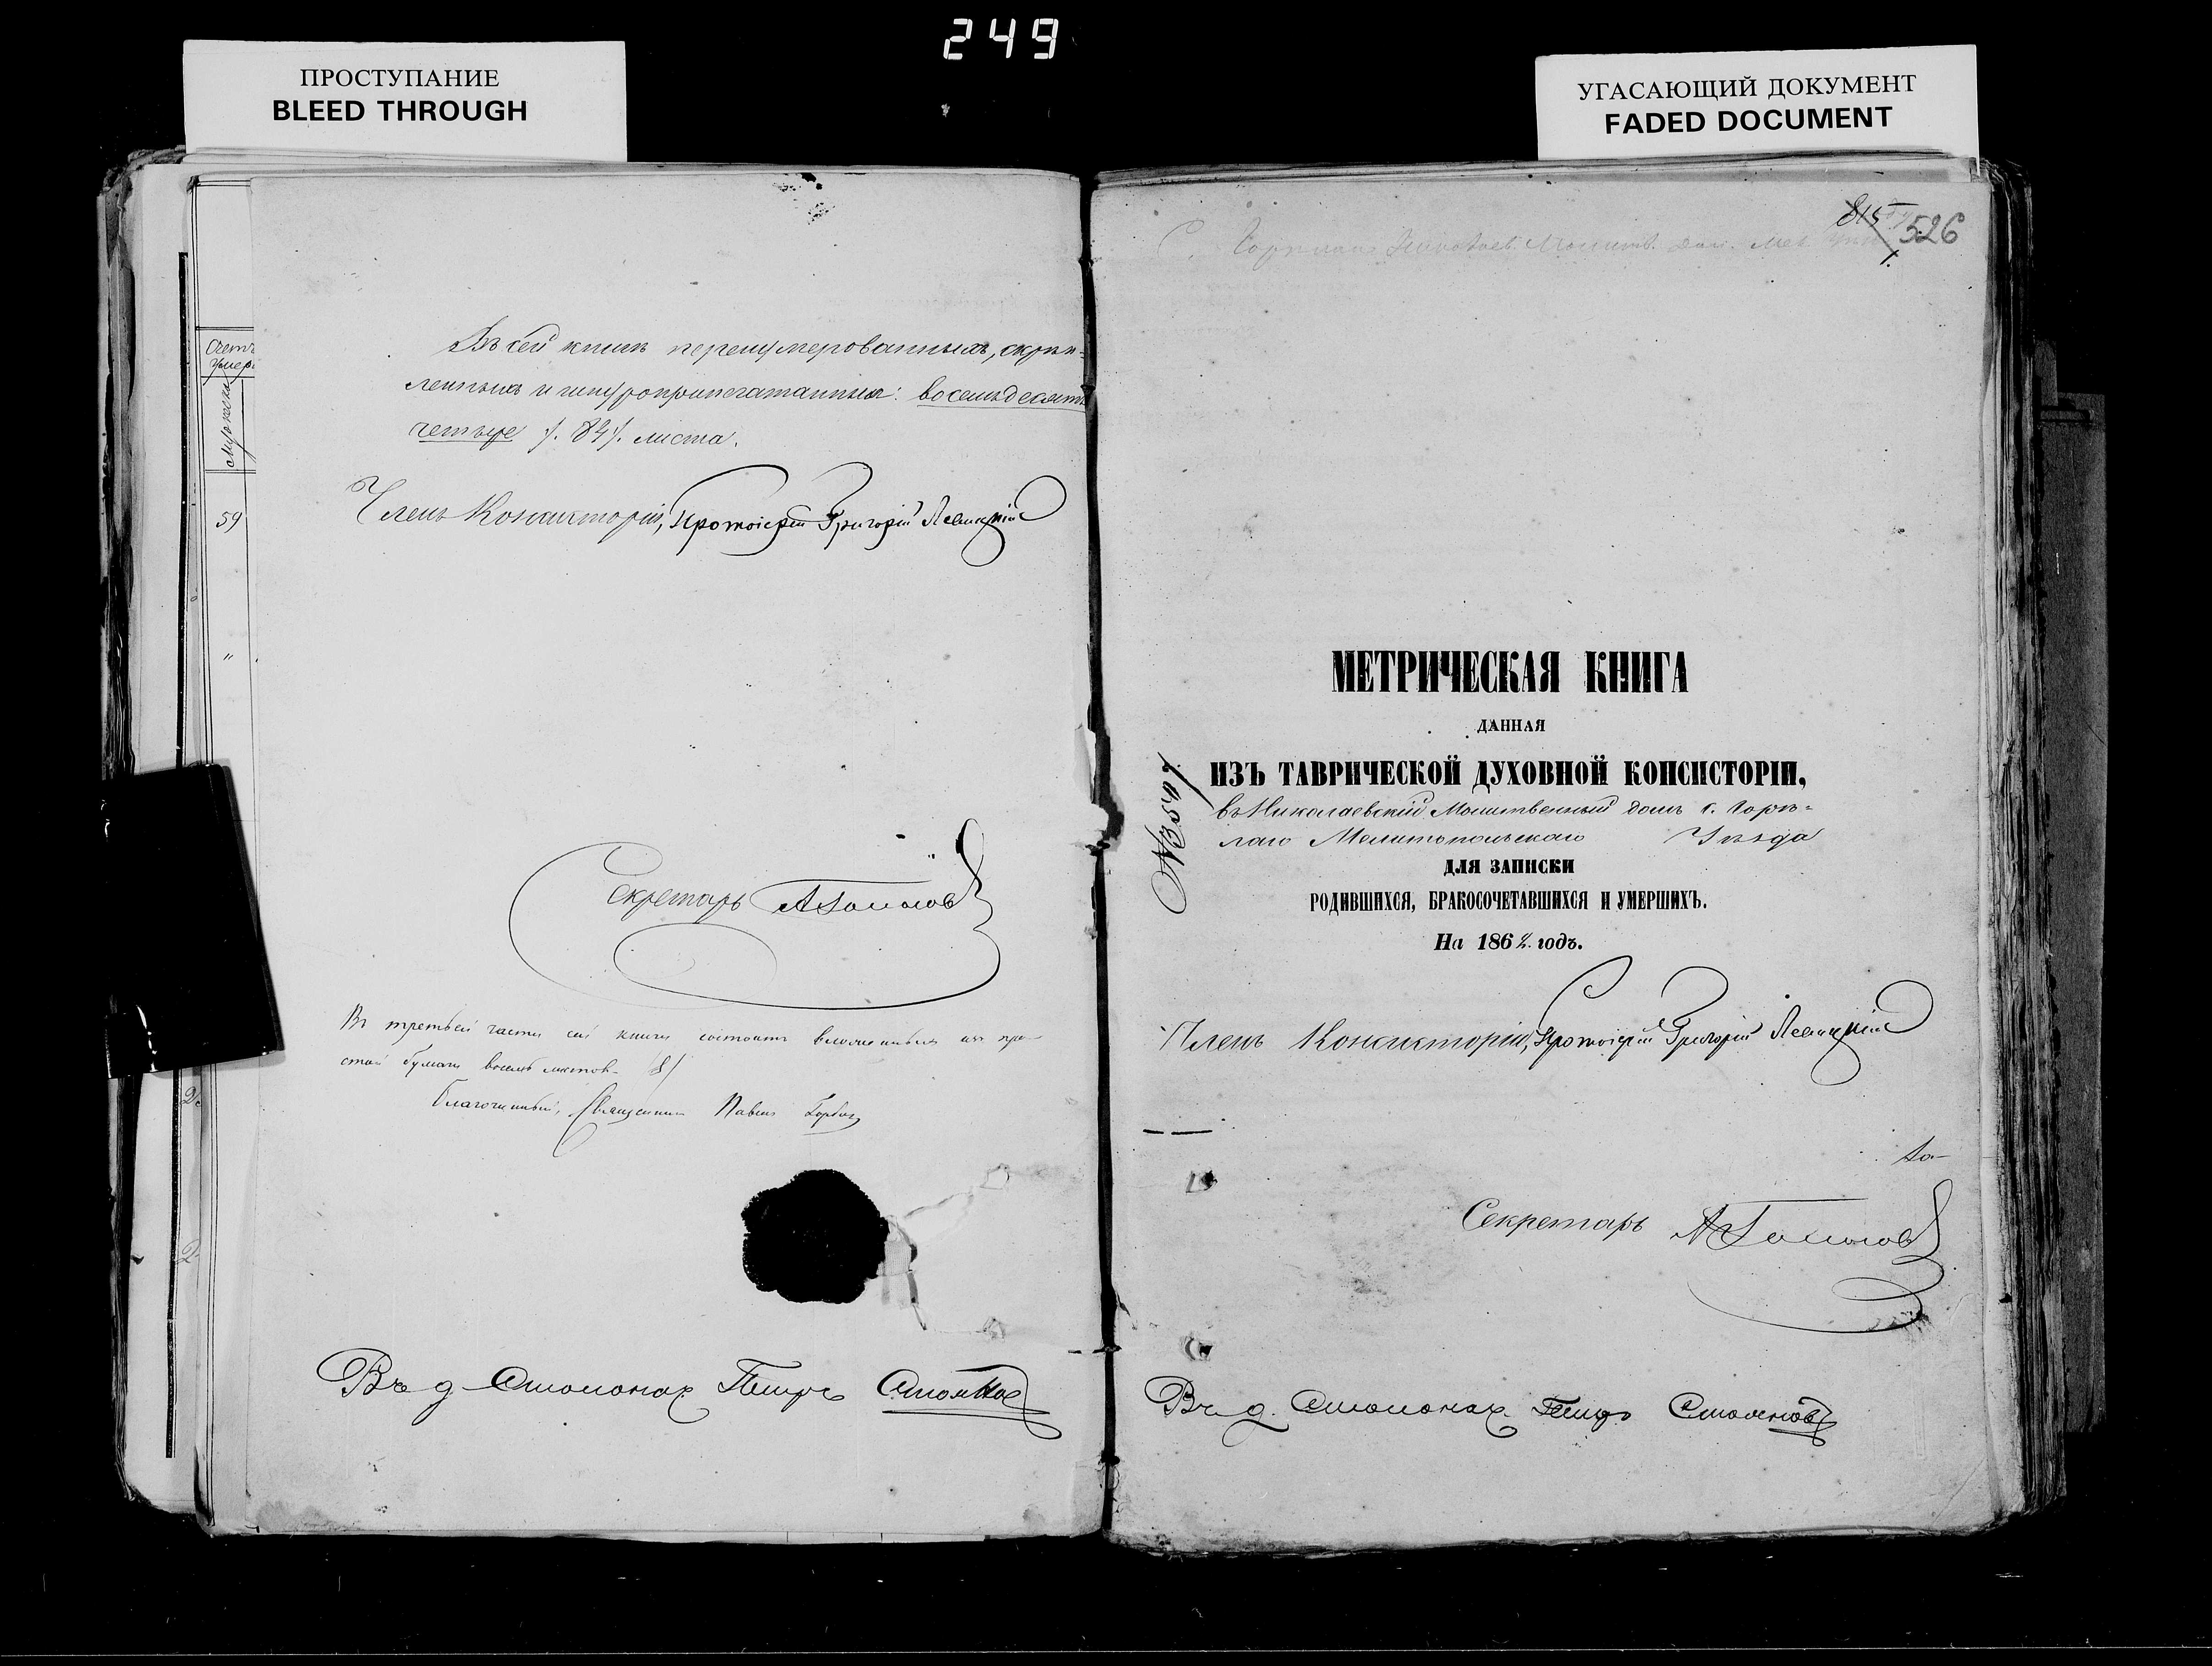 249
ПРОСТУПАНИЕ
BLEED THROUGH
УГАСАЮЩИЙ ДОКУМЕНТ
FADED DOCUMENT
Счетъ
умер
Мужеска
59
Въ сей книгѣ перенумерованныхъ, скрѣп-
ленныхъ и шнуроприпечатанныхъ: восемьдесятъ
четыре /. 84 /. листа.
Членъ Консисторіи, Протоіерей Григорій
Секретарь
Въ третьей части сей книги состоитъ вшитыхъ изъ про-
стой бумаги восемь листовъ (8)
Благочинный, Священникъ Павелъ
Въ д. Столонач. Петръ
815 526
С. Горѣлаго Николаев. Молитв. дом. Мел.
МЕТРИЧЕСКАЯ КНИГА
ДАННАЯ
ИЗЪ ТАВРИЧЕСКОЙ ДУХОВНОЙ КОНСИСТОРІИ,
въ Николаевскій Молитвенный домъ с. Горѣ-
лаго Мелитопольскаго Уѣзда
ДЛЯ ЗАПИСКИ
РОДИВШИХСЯ, БРАКОСОЧЕТАВШИХСЯ И УМЕРШИХЪ.
На 1862 годъ.
Членъ Консисторіи, Протоіерей Григорій
Секретарь
Въ д. Столонач. Петръ